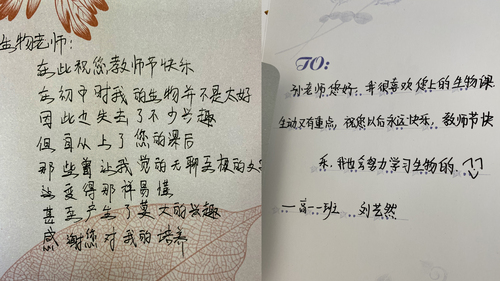 生物老师：
在此祝您教师节快乐
在初中时我的生物并不是太好
因此也失去了不少兴趣
但自从上了您的课后
那些曾让我觉的无聊至极的文
让变得那样易懂
甚至产生了莫大的兴趣
感谢您对我的培养
TO:
孙老师您好，我很喜欢您上的生物课
生动又有重点，祝您以后永远快乐，教师节快
乐，我也会努力学习生物的
一高一一班 刘艺然